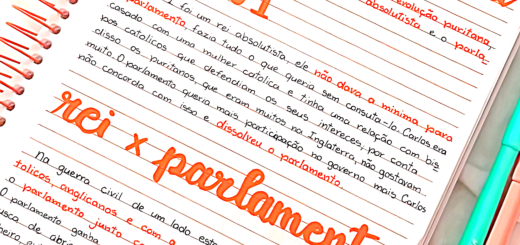 evolução puritana,
absolutista e o parla-
1
foi um rei absolutista, ele não dava a mínima para
parlamento, fazia tudo o que queria sem consuta-lo. Carlos era
casado com uma mulher católica e tinha uma relação com bis-
pos católicos que defendiam os seus intereces, por conta
disso os puritanos, que eram muitos na Inglaterra, não gostavam
muito. O parlamento queria mais participação no governo mais Carlos
não concorda com isso e dissolveu o parlamento.
rei x parlament
Na guerra civil de um lado est
tolicos, anglicanos e com a
o parlamento junto c
O parlamento ganha
usca de abri